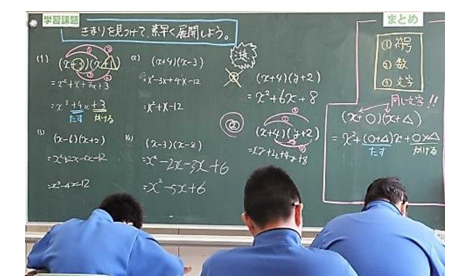 学習課題
きまりを見つけて、素早く展開しよう。
(1)
= x²+4x+3
たす かける
(2) (x+4)(x-3)
= x²-3x+4x-12
= x²+x-12
(3) (x-6)(x+2)
= x²+2x-6x-12
= x²-4x-12
(4) (x-3)(x-2)
= x²-2x-3x+6
= x²-5x+6
(x+4)(y+2)
= x²+6x+8
(x+4)(y+2)
まとめ
① 符号
② 数
③ 文字
同じ文字!!
(x+○)(x+△)
= x²+(○+△)x+○×△
たす かける